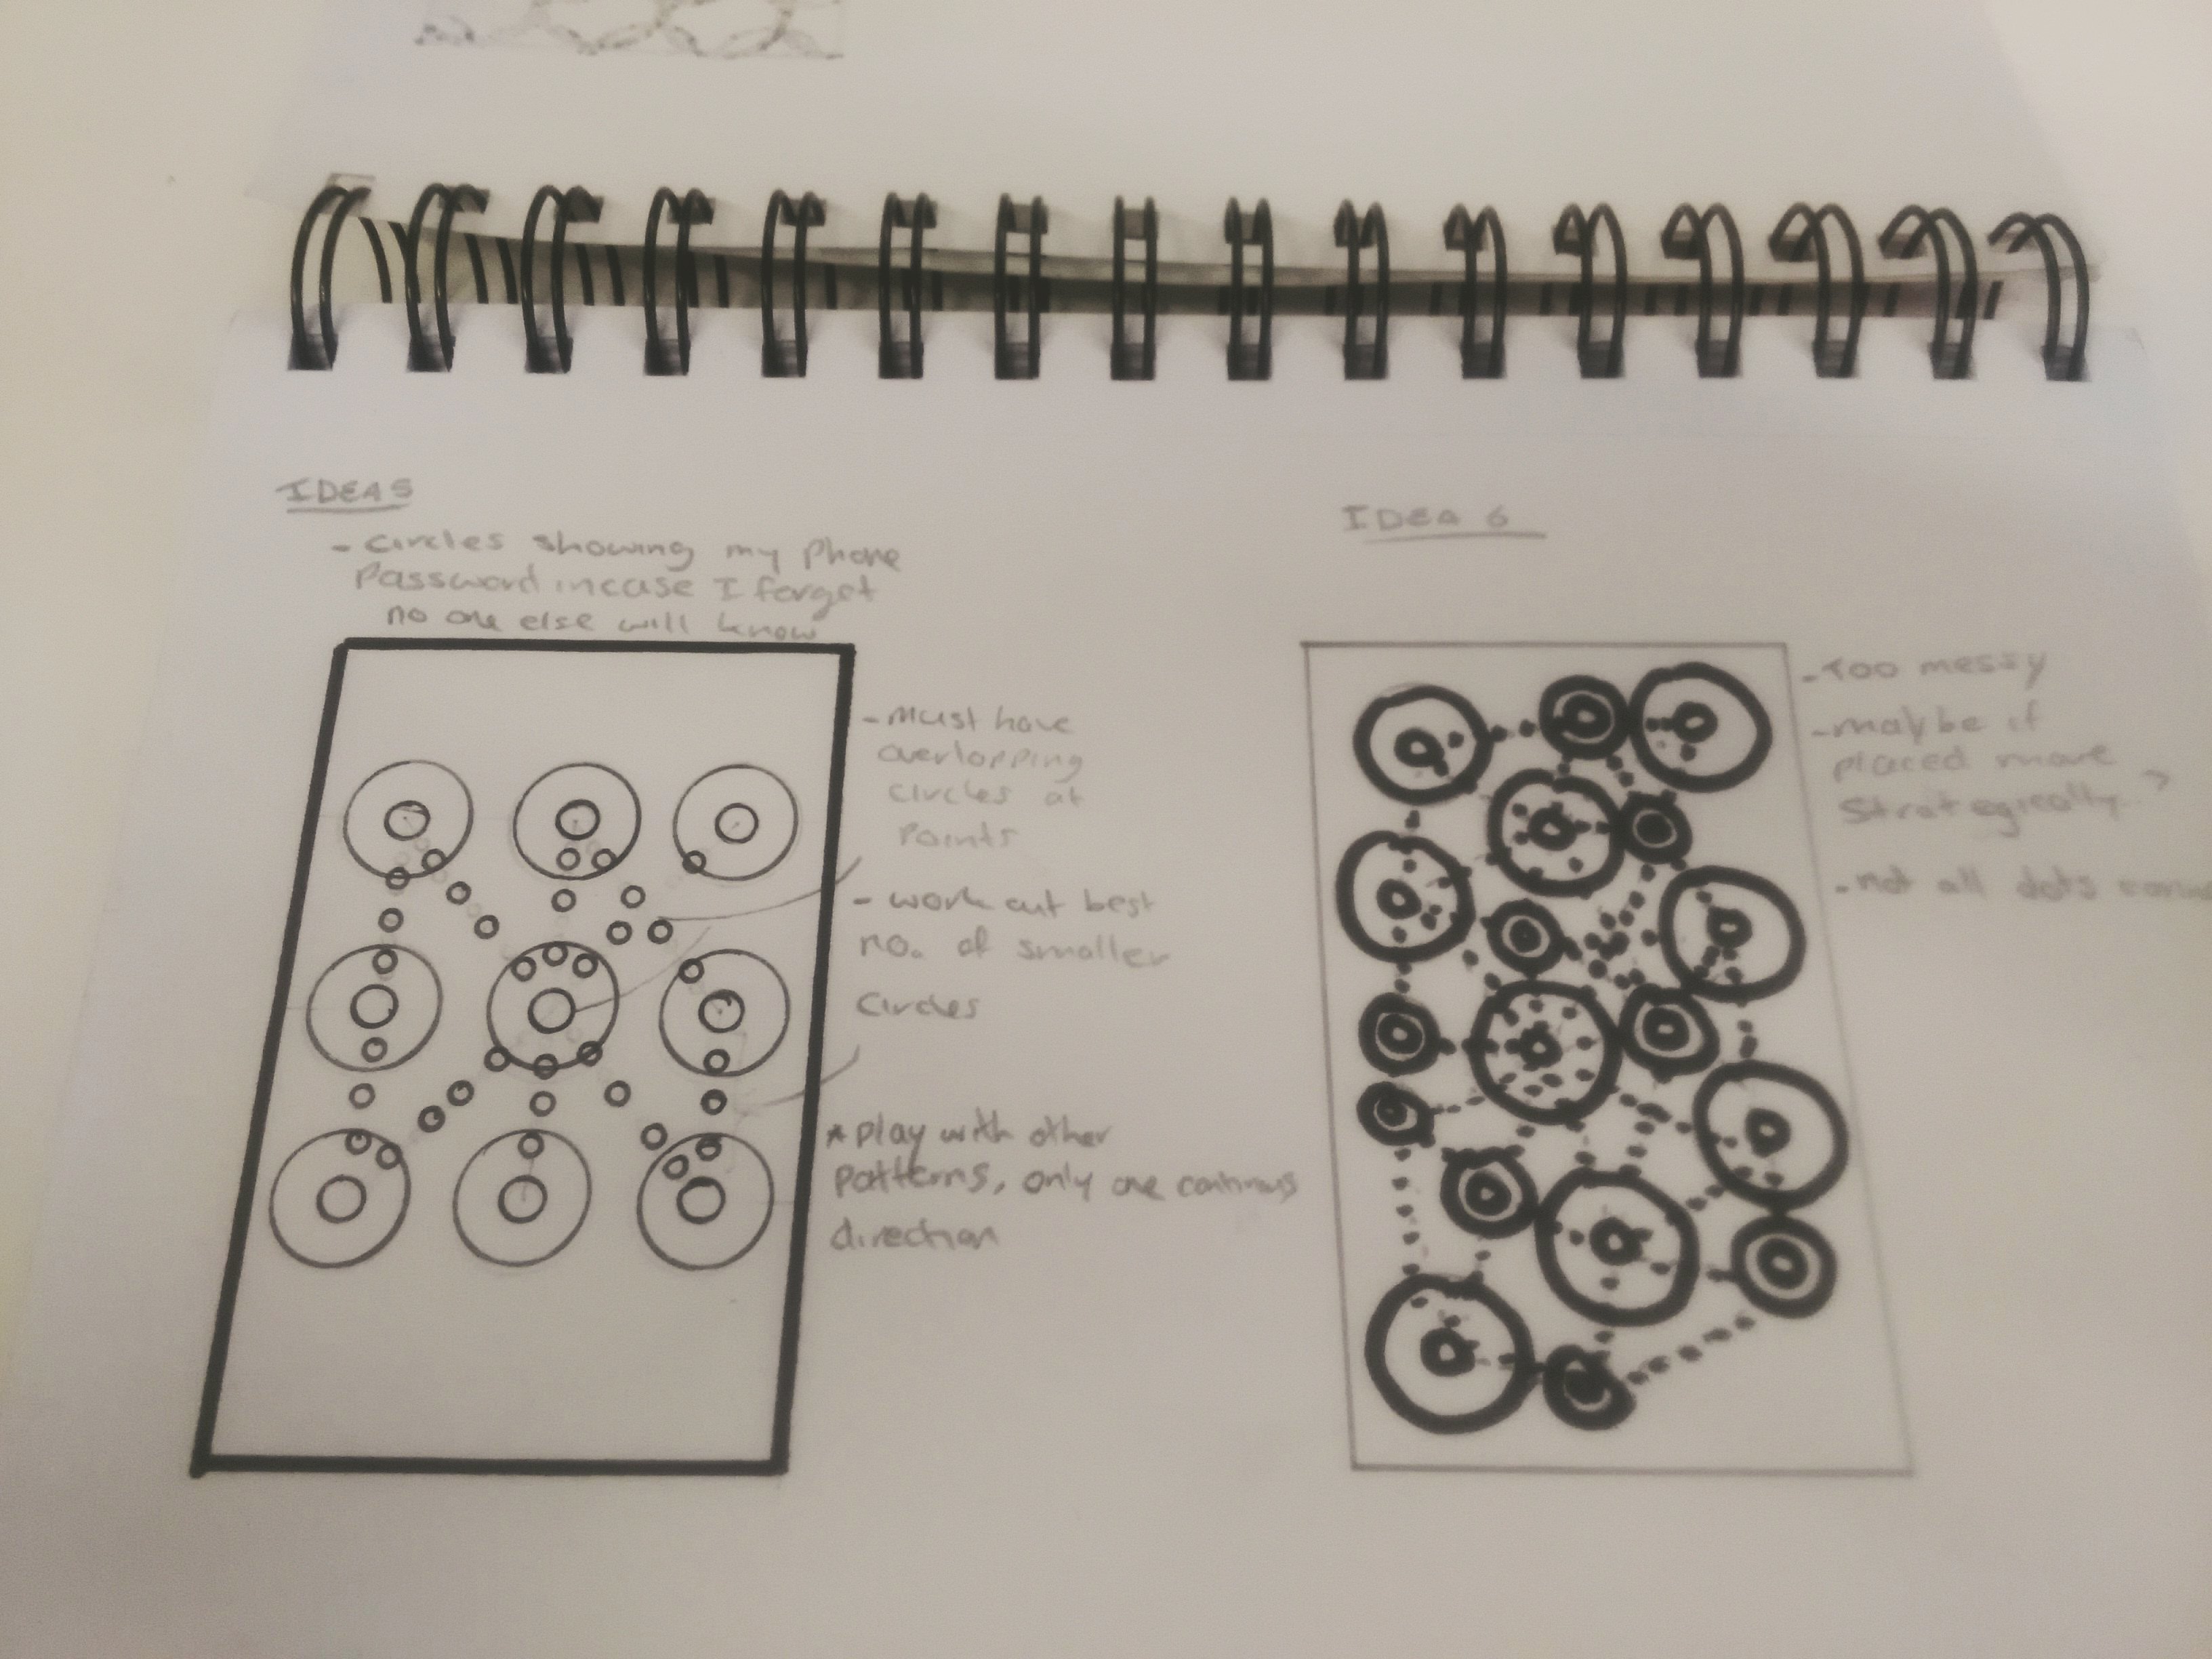 IDEA 5
- circles showing my phone
Password incase I forget
no one else will know
- Must have
overlapping
circles at
points
- work out best
no. of smaller
circles
* play with other
patterns, only one continuous
direction
IDEA 6
- Too messy
- maybe if
placed more
Strategically..?
- not all dots